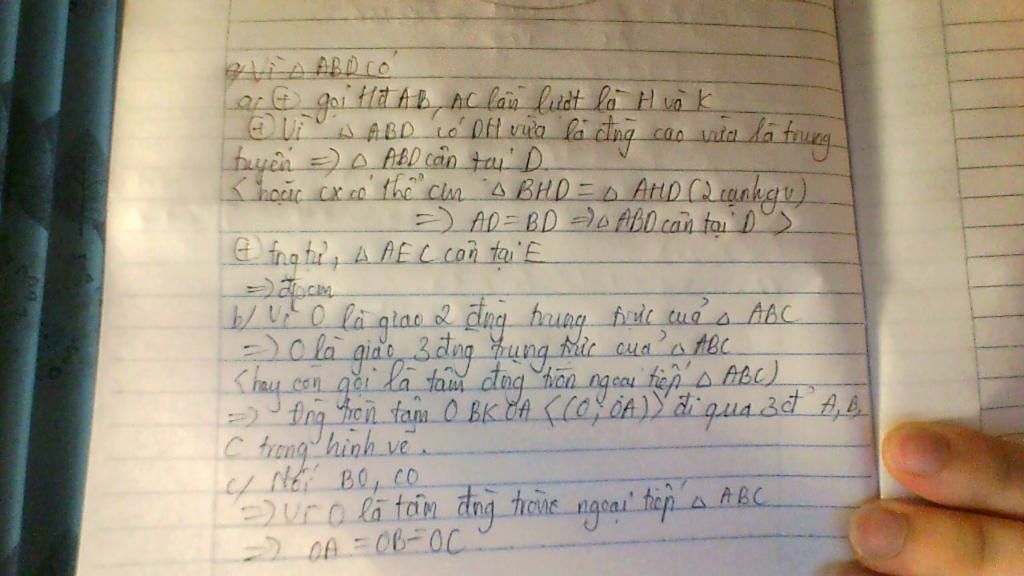 a, Vì △ ABD có
a, ⊕ gọi tđ AB, AC lần lượt là H và K
⊕ Vì △ ABD có DH vừa là đng cao vừa là trung
tuyến => △ ABD cân tại D.
< hoặc cx có thể cm △ BHD = △ AHD (2 cạnh gv)
=> AD = BD => △ ABD cân tại D >
⊕ tng tự, △ AEC cân tại E
=> đpcm
b/ Vì O là giao 2 đng trung trực của △ ABC
=> O là giao 3 đng trung trực của △ ABC
(hay còn gọi là tâm đng tròn ngoại tiếp △ ABC)
=> Đng tròn tâm O BK OA <(O; OA)> đi qua 3 đ' A, B,
C trong hình vẽ.
c/ Nối BO, CO
=> Vì O là tâm đng tròn ngoại tiếp △ ABC
=> OA = OB = OC